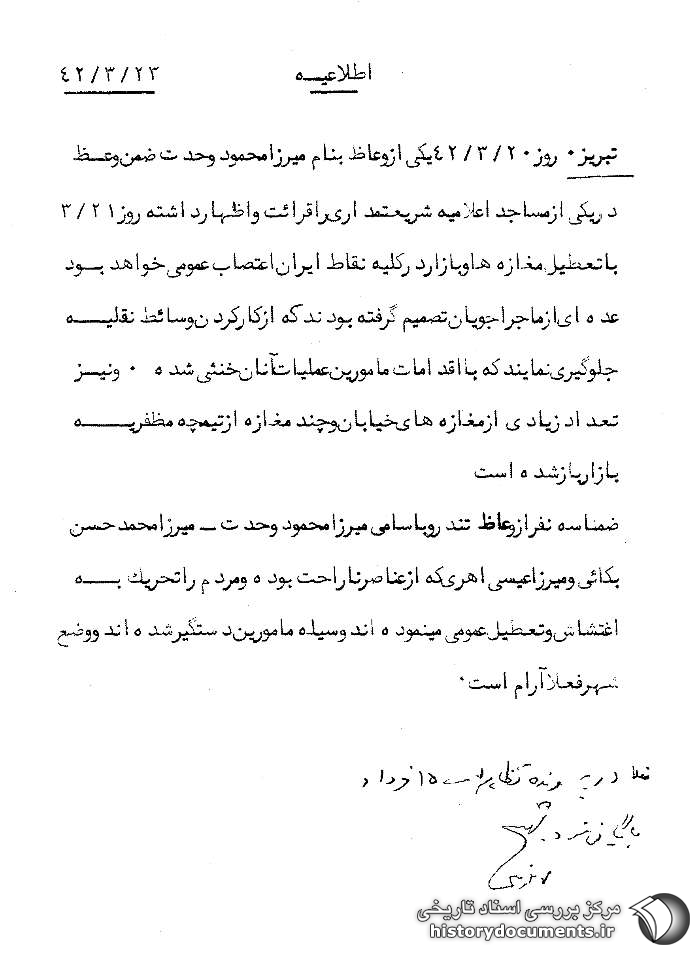 اطلاعیه ۴۲/۳/۲۳
تبریز۰ روز ۴۲/۳/۲۰ یکی از وعاظ بنام میرزا محمود وحدت ضمن وعظ
در یکی از مساجد اعلامیه شریعتمداری را قرائت و اظهار داشته روز ۳/۲۱
با تعطیل مغازه ها و بازار در کلیه نقاط ایران اعتصاب عمومی خواهد بود
عده ای از ماجراجویان تصمیم گرفته بودند که از کار کردن وسائط نقلیه
جلوگیری نمایند که با اقدامات مامورین عملیات آنان خنثی شده ۰ و نیز
تعداد زیادی از مغازه های خیابان و چند مغازه از تیمچه مظفریه
بازار باز شده است
ضمنا سه نفر از وعاظ تندرو باسامی میرزا محمود وحدت ــ میرزا محمد حسن
بکائی و میرزا عیسی اهری که از عناصر ناراحت بوده و مردم را تحریک به
اغتشاش و تعطیل عمومی مینموده اند وسیله مامورین دستگیر شده اند و وضع
شهر فعلا آرام است۰
فعلا در پرونده تظاهرات ۱۵ خرداد
بایگانی شود
مرکز بررسی اسناد تاریخی
historydocuments.ir